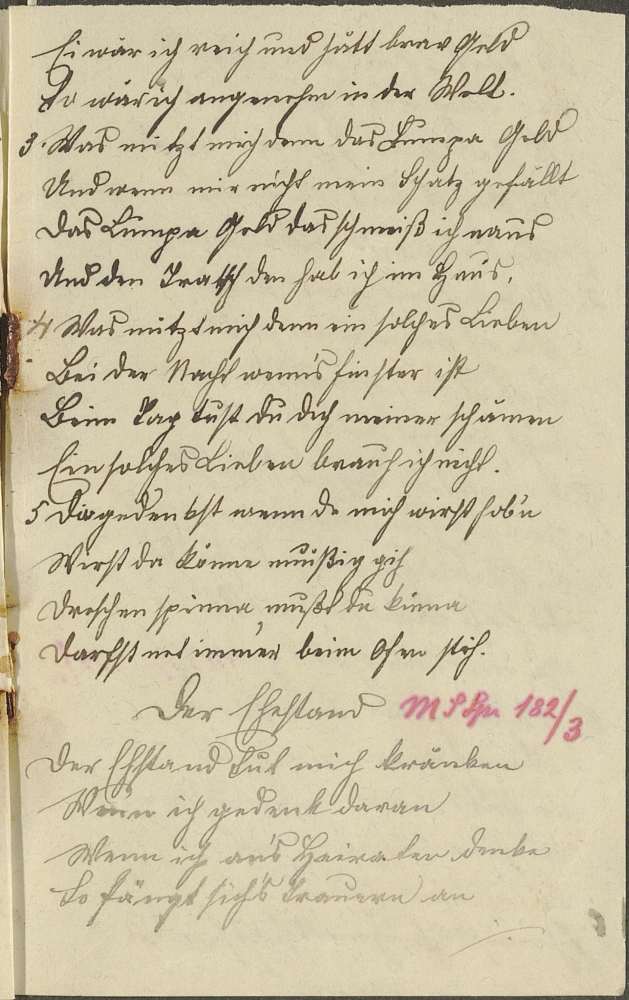 Ei wär ich reich und hätt brav Geld
So wär ich angenehm in der Welt.
3. Was nützt mich denn das Lumpa Geld
Und wenn mir nicht mein Schatz gefällt
Das Lumpa Geld das schmeiß ich naus
Und den Tratsch den hab ich im Haus,
4 Was nützt mich denn ein solches Lieben
Bei der Nacht wenn's finster ist
Beim Tag tust du dich meiner schämen
Ein solches Lieben brauch ich nicht.
5 Du gedenkst wenn de mich wirst hob'n
Wirst da könne müßig gih
Dreschen spinna, mußt du kinna
Darfst net immer beim Ofen stih.
Der Ehestand M S 182/3
Der Ehstand tut mich kränken
Wenn ich gedenk daran
Wenn ich an's Heiraten denke
So fängt sich's Trauern an